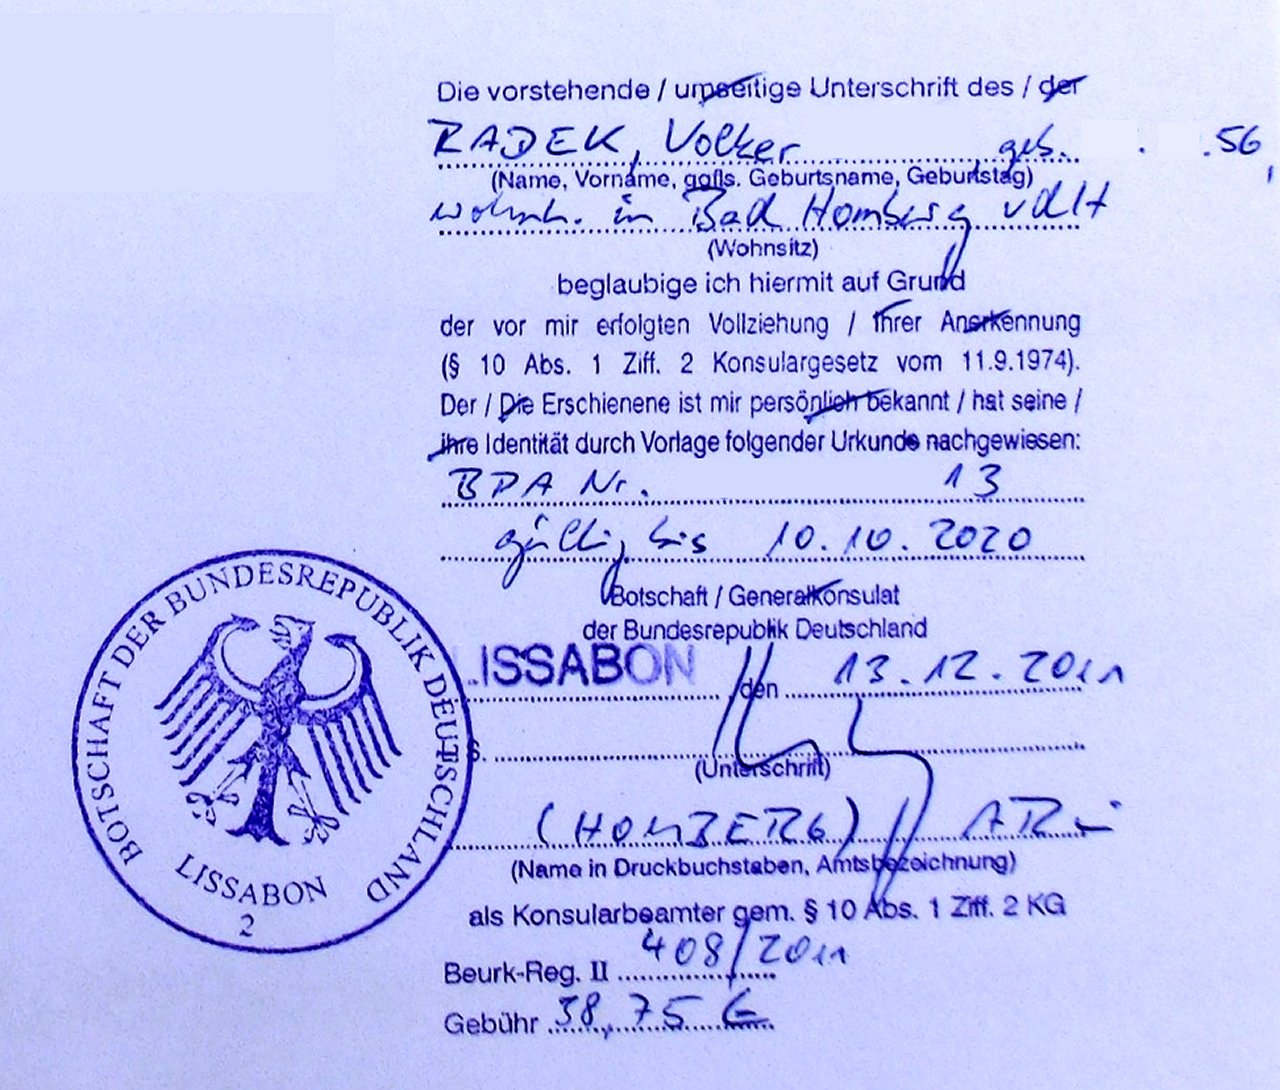 Die vorstehende / umseitige Unterschrift des / der
RADEK, Volker geb. . .56,
(Name, Vorname, ggfls. Geburtsname, Geburtstag)
wohnh. in Bad Homberg vdH
(Wohnsitz)
beglaubige ich hiermit auf Grund
der vor mir erfolgten Vollziehung / Ihrer Anerkennung
(§ 10 Abs. 1 Ziff. 2 Konsulargesetz vom 11.9.1974).
Der / Die Erschienene ist mir persönlich bekannt / hat seine /
ihre Identität durch Vorlage folgender Urkunde nachgewiesen:
BPA Nr. 13
gültig bis 10.10.2020
Botschaft / Generalkonsulat
der Bundesrepublik Deutschland
LISSABON den 13.12.2011
S.
(Unterschrift)
(HOMBERG)
(Name in Druckbuchstaben, Amtsbezeichnung)
als Konsularbeamter gem. § 10 Abs. 1 Ziff. 2 KG
Beurk-Reg. II 408/2011
Gebühr 38,75 €
BOTSCHAFT DER BUNDESREPUBLIK DEUTSCHLAND
LISSABON
2